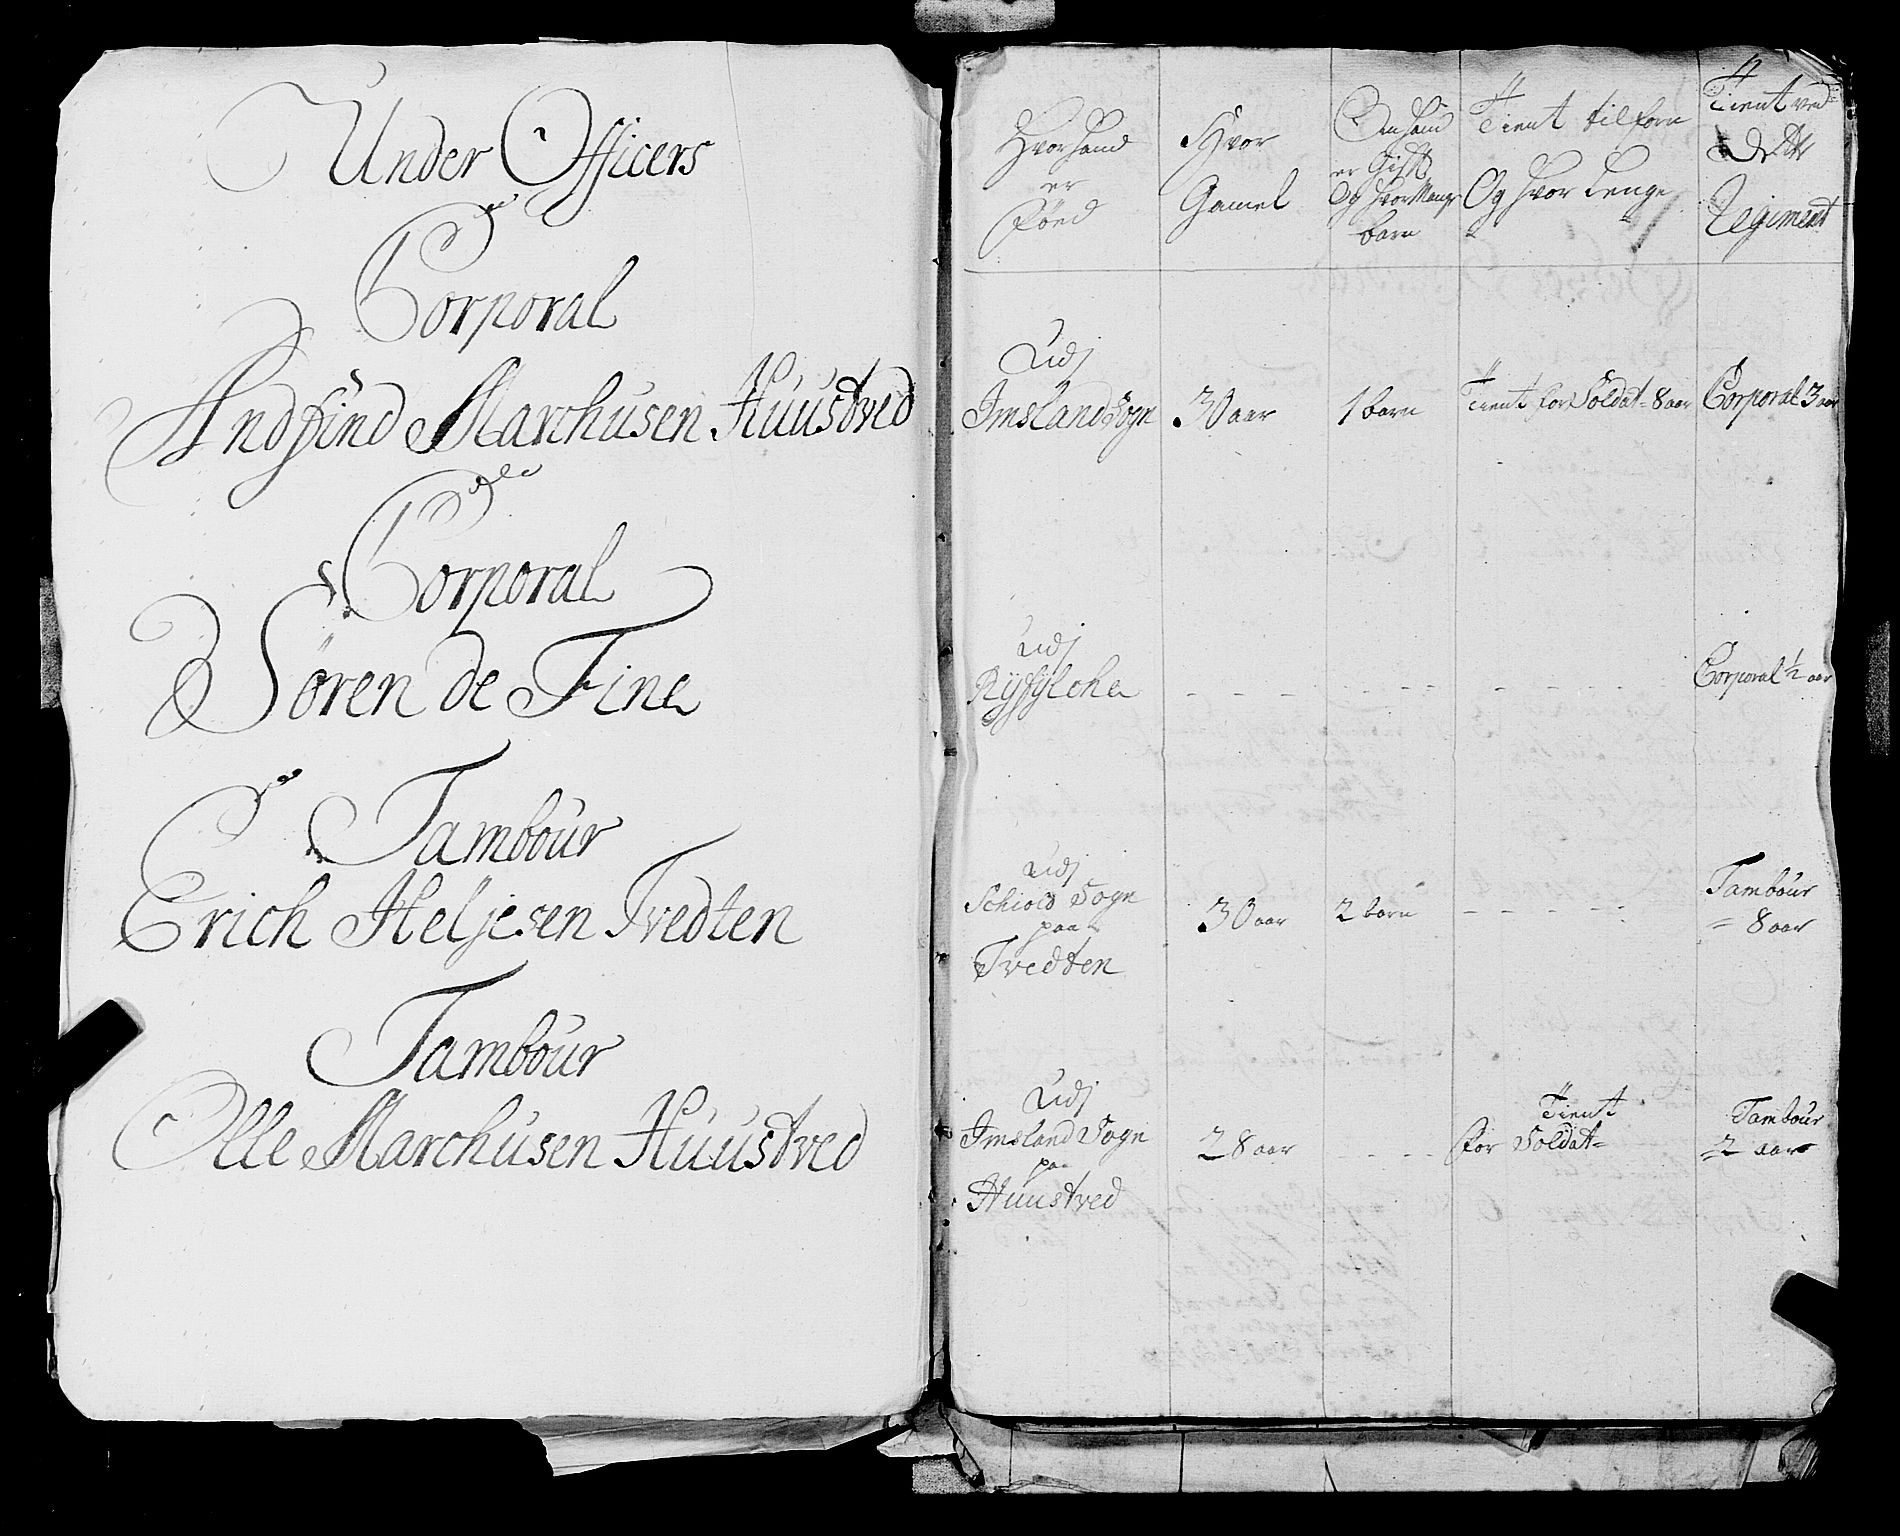 Under Officers
Corporal
Andfind Marchusen Huustved
Corporal
Sören de Fine
Tambour
Erich Heljesen Tvedten
Tambour
Olle Marchusen Huustved
Hvor hand
er
föed
Hvor
Gamel
Om hand
er Gift
Og hvor Mange
barn
Tient tilforn
Og hvor lenge
Tient ved
dette
Regiment
Udj
Imsland Sogn
30 aar
1 barn
Tient for Soldat 8 aar
Corporal 3 aar
Udj
Ryfylche
Corporal 1/2 aar
Udj
Schiold Sogn
paa
Tvedten
30 aar
2 barn
Tambour
8 aar
Udj
Imsland Sogn
paa
Huustved
28 aar
Tient
for Soldat
Tambour
2 aar